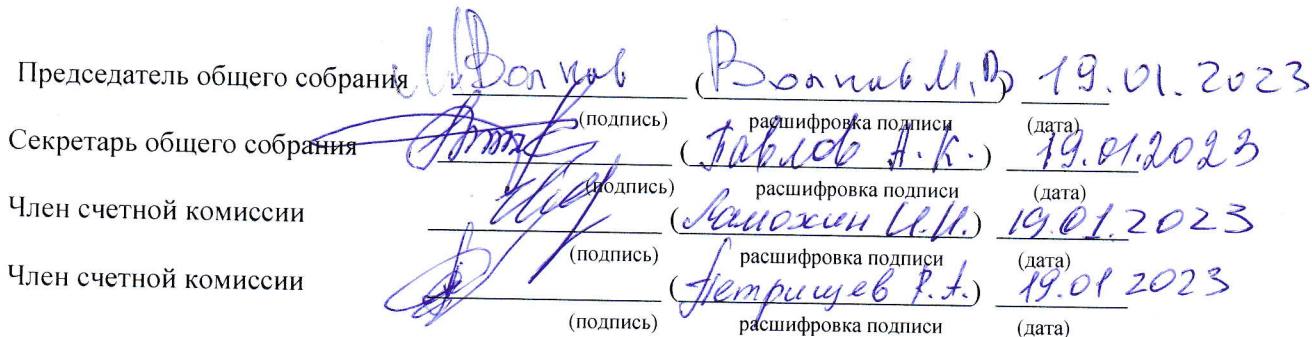 Председатель общего собрания М.Волков (Волков М.В) 19.01.2023
(подпись) расшифровка подписи (дата)
Секретарь общего собрания (Павлов А.К.) 19.01.2023
(подпись) расшифровка подписи (дата)
Член счетной комиссии (Ламохин И.И.) 19.01.2023
(подпись) расшифровка подписи (дата)
Член счетной комиссии (Петрищев Р.А.) 19.01 2023
(подпись) расшифровка подписи (дата)